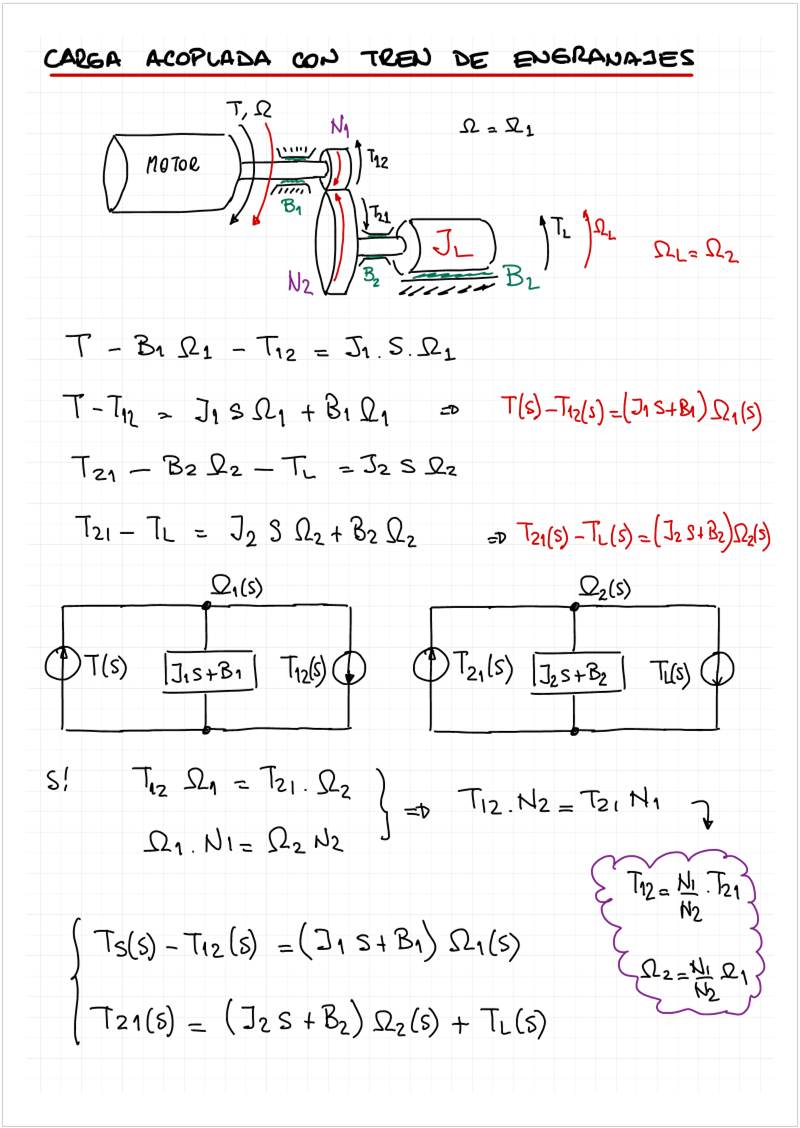 CARGA ACOPLADA CON TREN DE ENGRANAJES
T, Ω
N1
Ω = Ω1
MOTOR
T12
B1
T21
JL
TL
ΩL
ΩL = Ω2
N2
B2
B2
T - B1 Ω1 - T12 = J1 . S . Ω1
T - T12 = J1 S Ω1 + B1 Ω1 ⇒ T(s) - T12(s) = (J1 S + B1) Ω1(s)
T21 - B2 Ω2 - TL = J2 S Ω2
T21 - TL = J2 S Ω2 + B2 Ω2 ⇒ T21(s) - TL(s) = (J2 S + B2) Ω2(s)
Ω1(s) Ω2(s)
T(s) J1 S + B1 T12(s) T21(s) J2 S + B2 TL(s)
S! T12 Ω1 = T21 . Ω2
Ω1 . N1 = Ω2 N2
} ⇒ T12 . N2 = T21 N1
T12 = N1/N2 . T21
Ω2 = N1/N2 Ω1
TS(s) - T12(s) = (J1 S + B1) Ω1(s)
T21(s) = (J2 S + B2) Ω2(s) + TL(s)